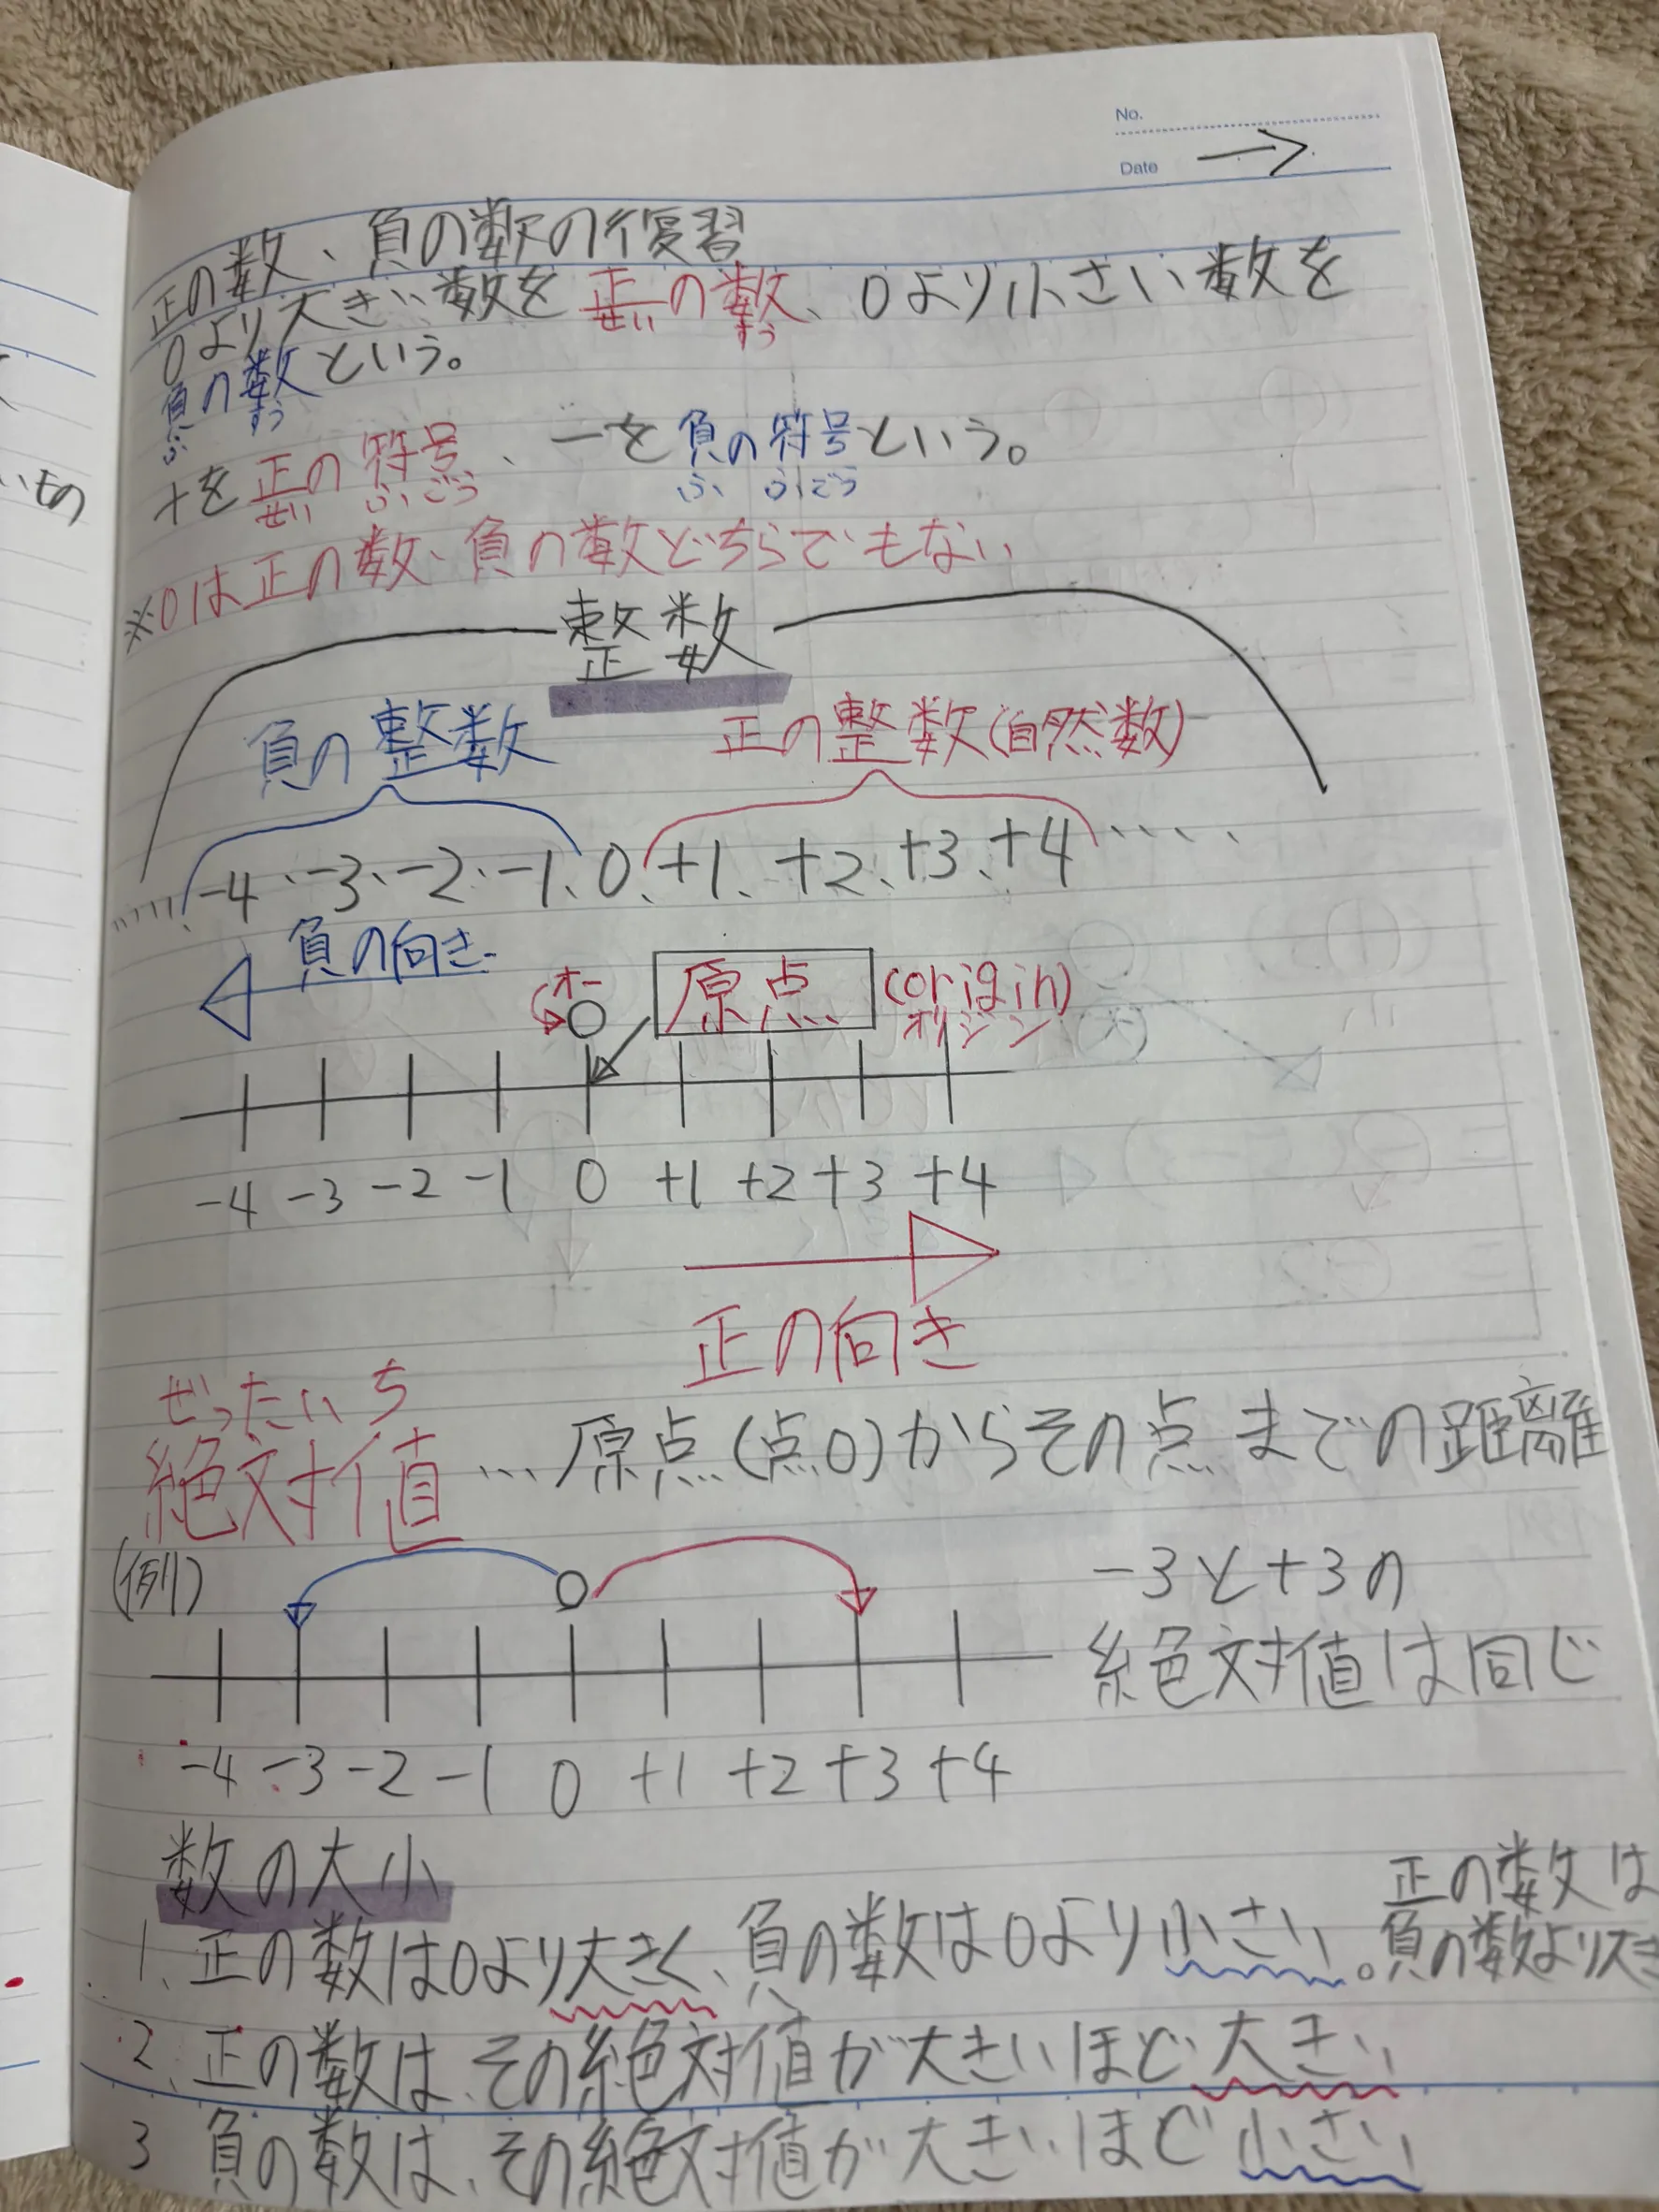 No.
Date →
正の数、負の数の復習
0より大きい数を正の数、0より小さい数を
せい すう
負の数という。
ふ すう
+を正の符号、-を負の符号という。
せい ふごう ふ ふごう
※0は正の数、負の数どちらでもない
整数
負の整数 正の整数(自然数)
…… -4、-3、-2、-1、0、+1、+2、+3、+4 ‥‥
負の向き
オー
O 原点 (origin)
オリジン
-4 -3 -2 -1 0 +1 +2 +3 +4
正の向き
ぜったいち
絶対値…原点(点0)からその点までの距離
(例) O -3と+3の
絶対値は同じ
-4 -3 -2 -1 0 +1 +2 +3 +4
数の大小
1、正の数は0より大きく、負の数は0より小さい。正の数は
負の数より大き
2、正の数は、その絶対値が大きいほど大きい
3 負の数は、その絶対値が大きいほど小さい
いもの